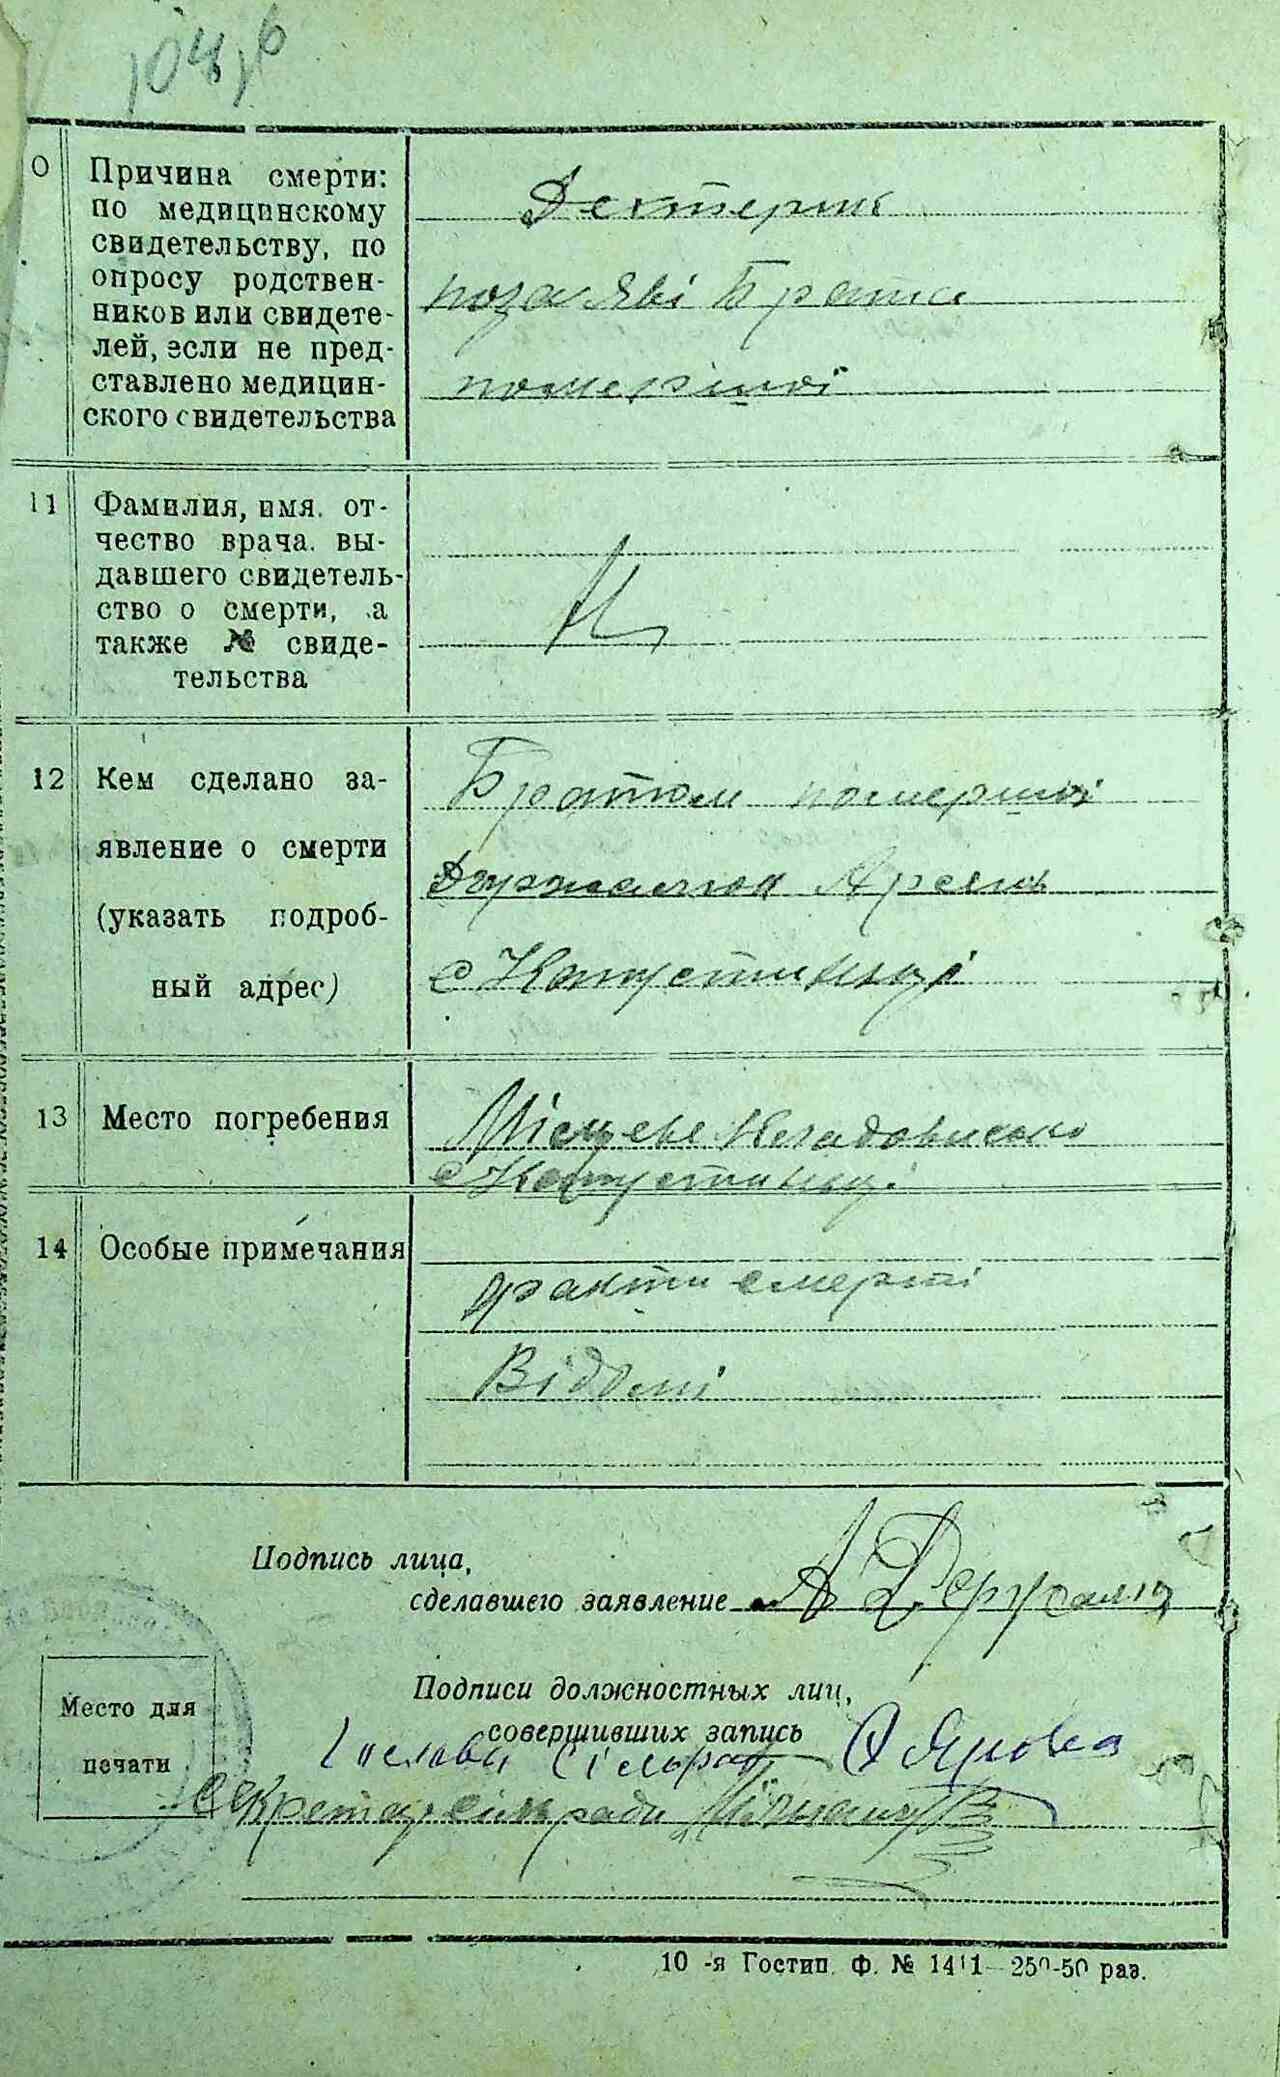 104,6
0 Причина смерти: по медицинскому свидетельству, по опросу родственников или свидетелей, если не представлено медицинского свидетельства
по заяві Брата
помершої
11 Фамилия, имя. отчество врача. выдавшего свидетельство о смерти, а также № свидетельства
12 Кем сделано заявление о смерти (указать подробный адрес)
Братом помершої
с Капустинці
13 Место погребения
Місцеве Кладовисько
с Капустинці
14 Особые примечания
факти смерті
Відомі
Подпись лица,
сделавшего заявление
Подписи должностных лиц,
совершивших запись
Голова Сільради
Секретар сільради
Место для
печати
10 -я Гостип. Ф. № 1411—250-50 раз.